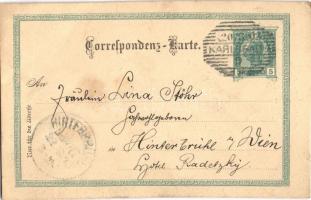 Correspondenz-Karte.
An
Fräulein Lina Stöhr
in Hinterbrühl b/ Wien
Hotel Radetzky
Nur für die Adresse
5 5